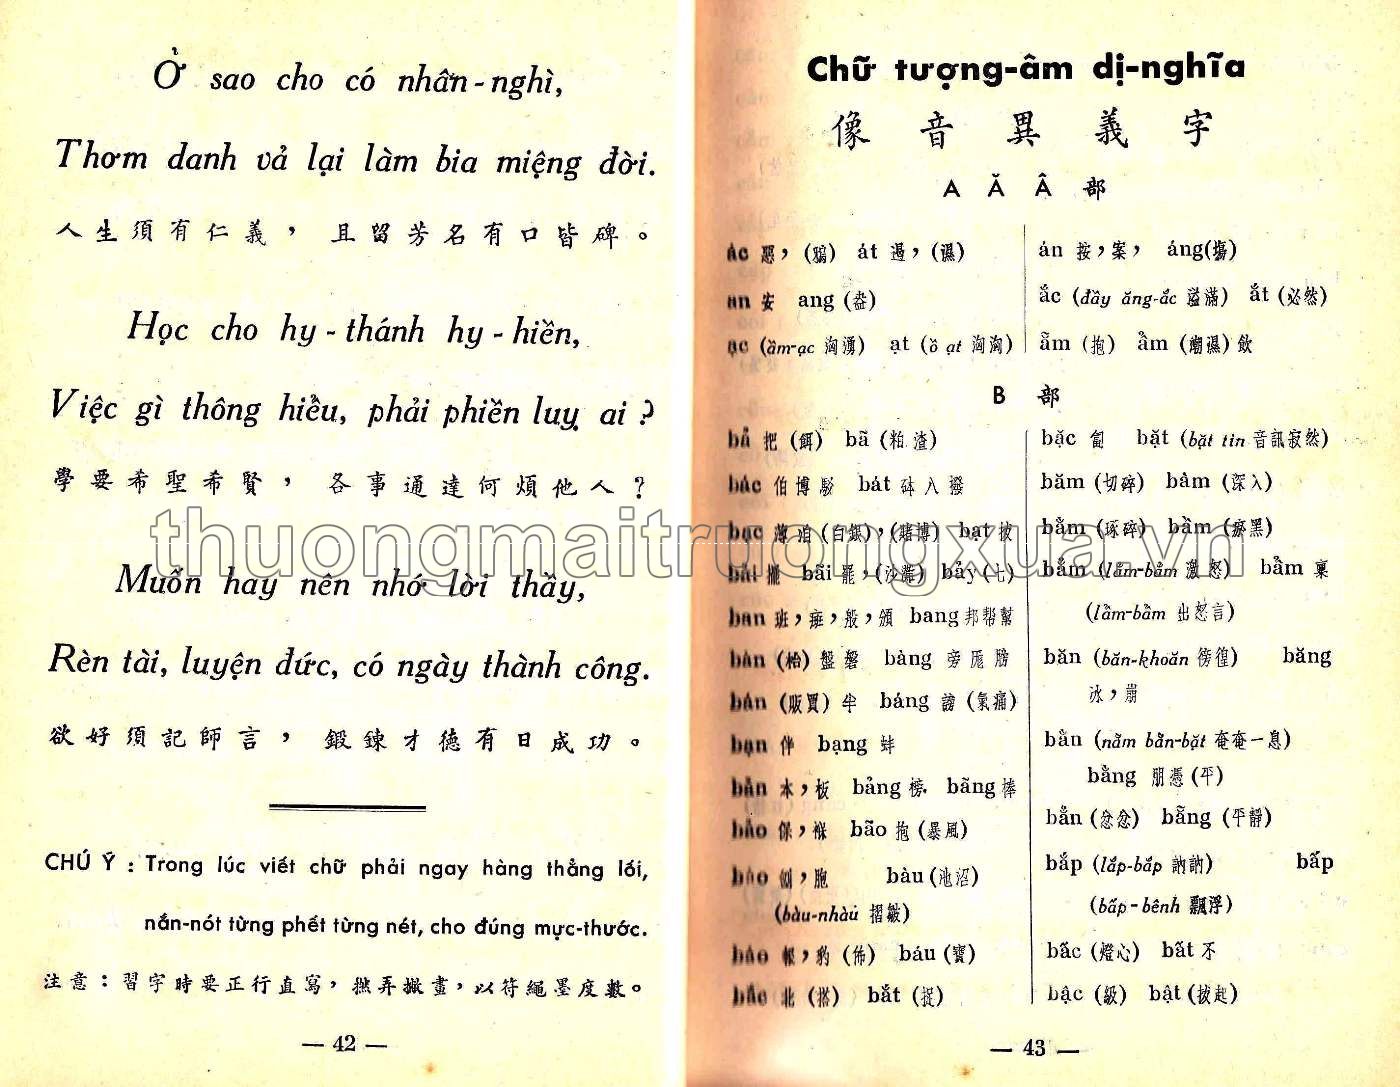 Ở sao cho có nhân-nghì,
Thơm danh vả lại làm bia miệng đời.
人生須有仁義，且留芳名有口皆碑。
Học cho hy-thánh hy-hiền,
Việc gì thông hiểu, phải phiền luỵ ai?
學要希聖希賢，各事通達何煩他人?
Muốn hay nên nhớ lời thầy,
Rèn tài, luyện đức, có ngày thành công.
欲好須記師言，鍛鍊才德有日成功。
CHÚ Ý : Trong lúc viết chữ phải ngay hàng thẳng lối,
nắn-nót từng phết từng nét, cho đúng mực-thước.
注意：習字時要正行直寫，撇弄撇畫，以符繩墨度數。
— 42 —
Chữ tượng-âm dị-nghĩa
像音異義字
A Ă Â 部
ác 惡，(鴉) át 遏，(濕)
an 安 ang (盎)
ạc (ầm-ạc 洶湧) ạt (ồ ạt 洶洶)
án 按，案， áng(塲)
ắc (đầy ăng-ắc 溢滿) ắt (必然)
ẵm (抱) ẩm (潮濕) 飲
B 部
bả 把 (餌) bã (粕渣)
bác 伯博駁 bát 砵八撥
bạc 薄泊(白銀)，(賭博) bạt 拔
bãi 罷，(沙灘) bảy (七)
ban 班，瘢，般，頒 bang 邦帮幫
bàn (枱) 盤磐 bàng 旁厖膀
bán (販買) 半 báng 謗 (氣痛)
bạn 伴 bạng 蚌
bản 本，板 bảng 榜. bãng 棒
bảo 保，褓 bão 抱 (暴風)
bào 刨，胞 bàu (池沼)
(bàu-nhàu 摺皺)
báo 報，豹 (佈) báu (寶)
bắc 北 (搭) bắt (捉)
bặc 匐 bặt (bặt tin 音訊寂然)
băm (切碎) bâm (深入)
bằm (琢碎) bầm (瘀黑)
bẳm (lẳm-bẳm 激怒) bẩm 稟
(lầm-bầm 出怒言)
băn (băn-khoăn 傍徨) băng
冰，崩
bằn (nằm bằn-bặt 奄奄一息)
bằng 朋憑 (平)
bẳn (忿忿) bẵng (平靜)
bắp (lắp-bắp 訥訥) bấp
(bấp-bênh 飄浮)
bấc (燈心) bất 不
bậc (級) bật (拔起)
— 43 —
thuongmaitruongxua.vn